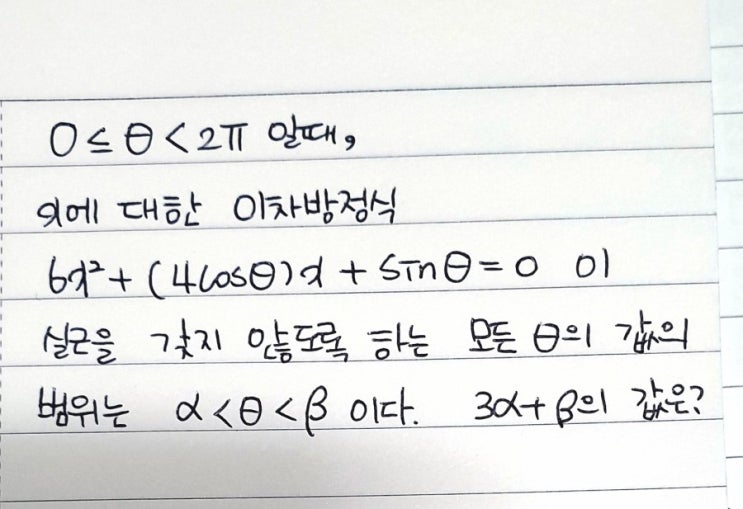 0 ≤ θ < 2π 일때,
x에 대한 이차방정식
6x² + (4cosθ)x + sinθ = 0 이
실근을 갖지 않도록 하는 모든 θ의 값의
범위는 α < θ < β 이다. 3α + β의 값은?